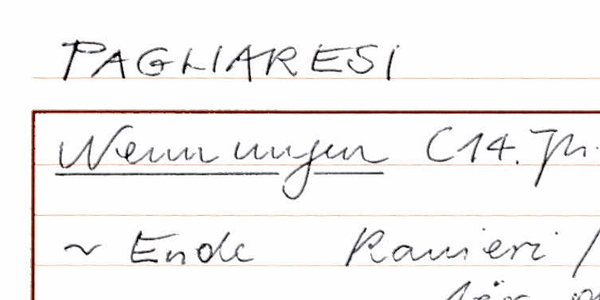 PAGLIARESI
Nennungen (14. Jh.
~ Ende Ranieri /